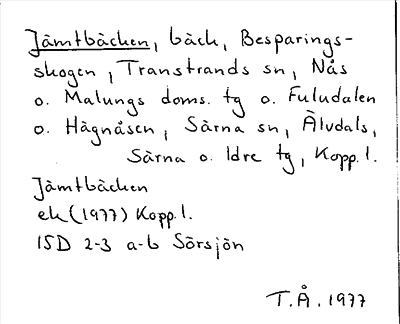 Jämtbäcken, bäck, Besparings-
skogen, Transtrands sn, Nås
o. Malungs doms. tg o. Fuludalen
o. Hägnåsen, Särna sn, Älvdals,
Särna o. Idre tg, Kopp.l.
Jämtbäcken
ek (1977) Kopp.l.
15D 2-3 a-b Sörsjön
T.Å. 1977